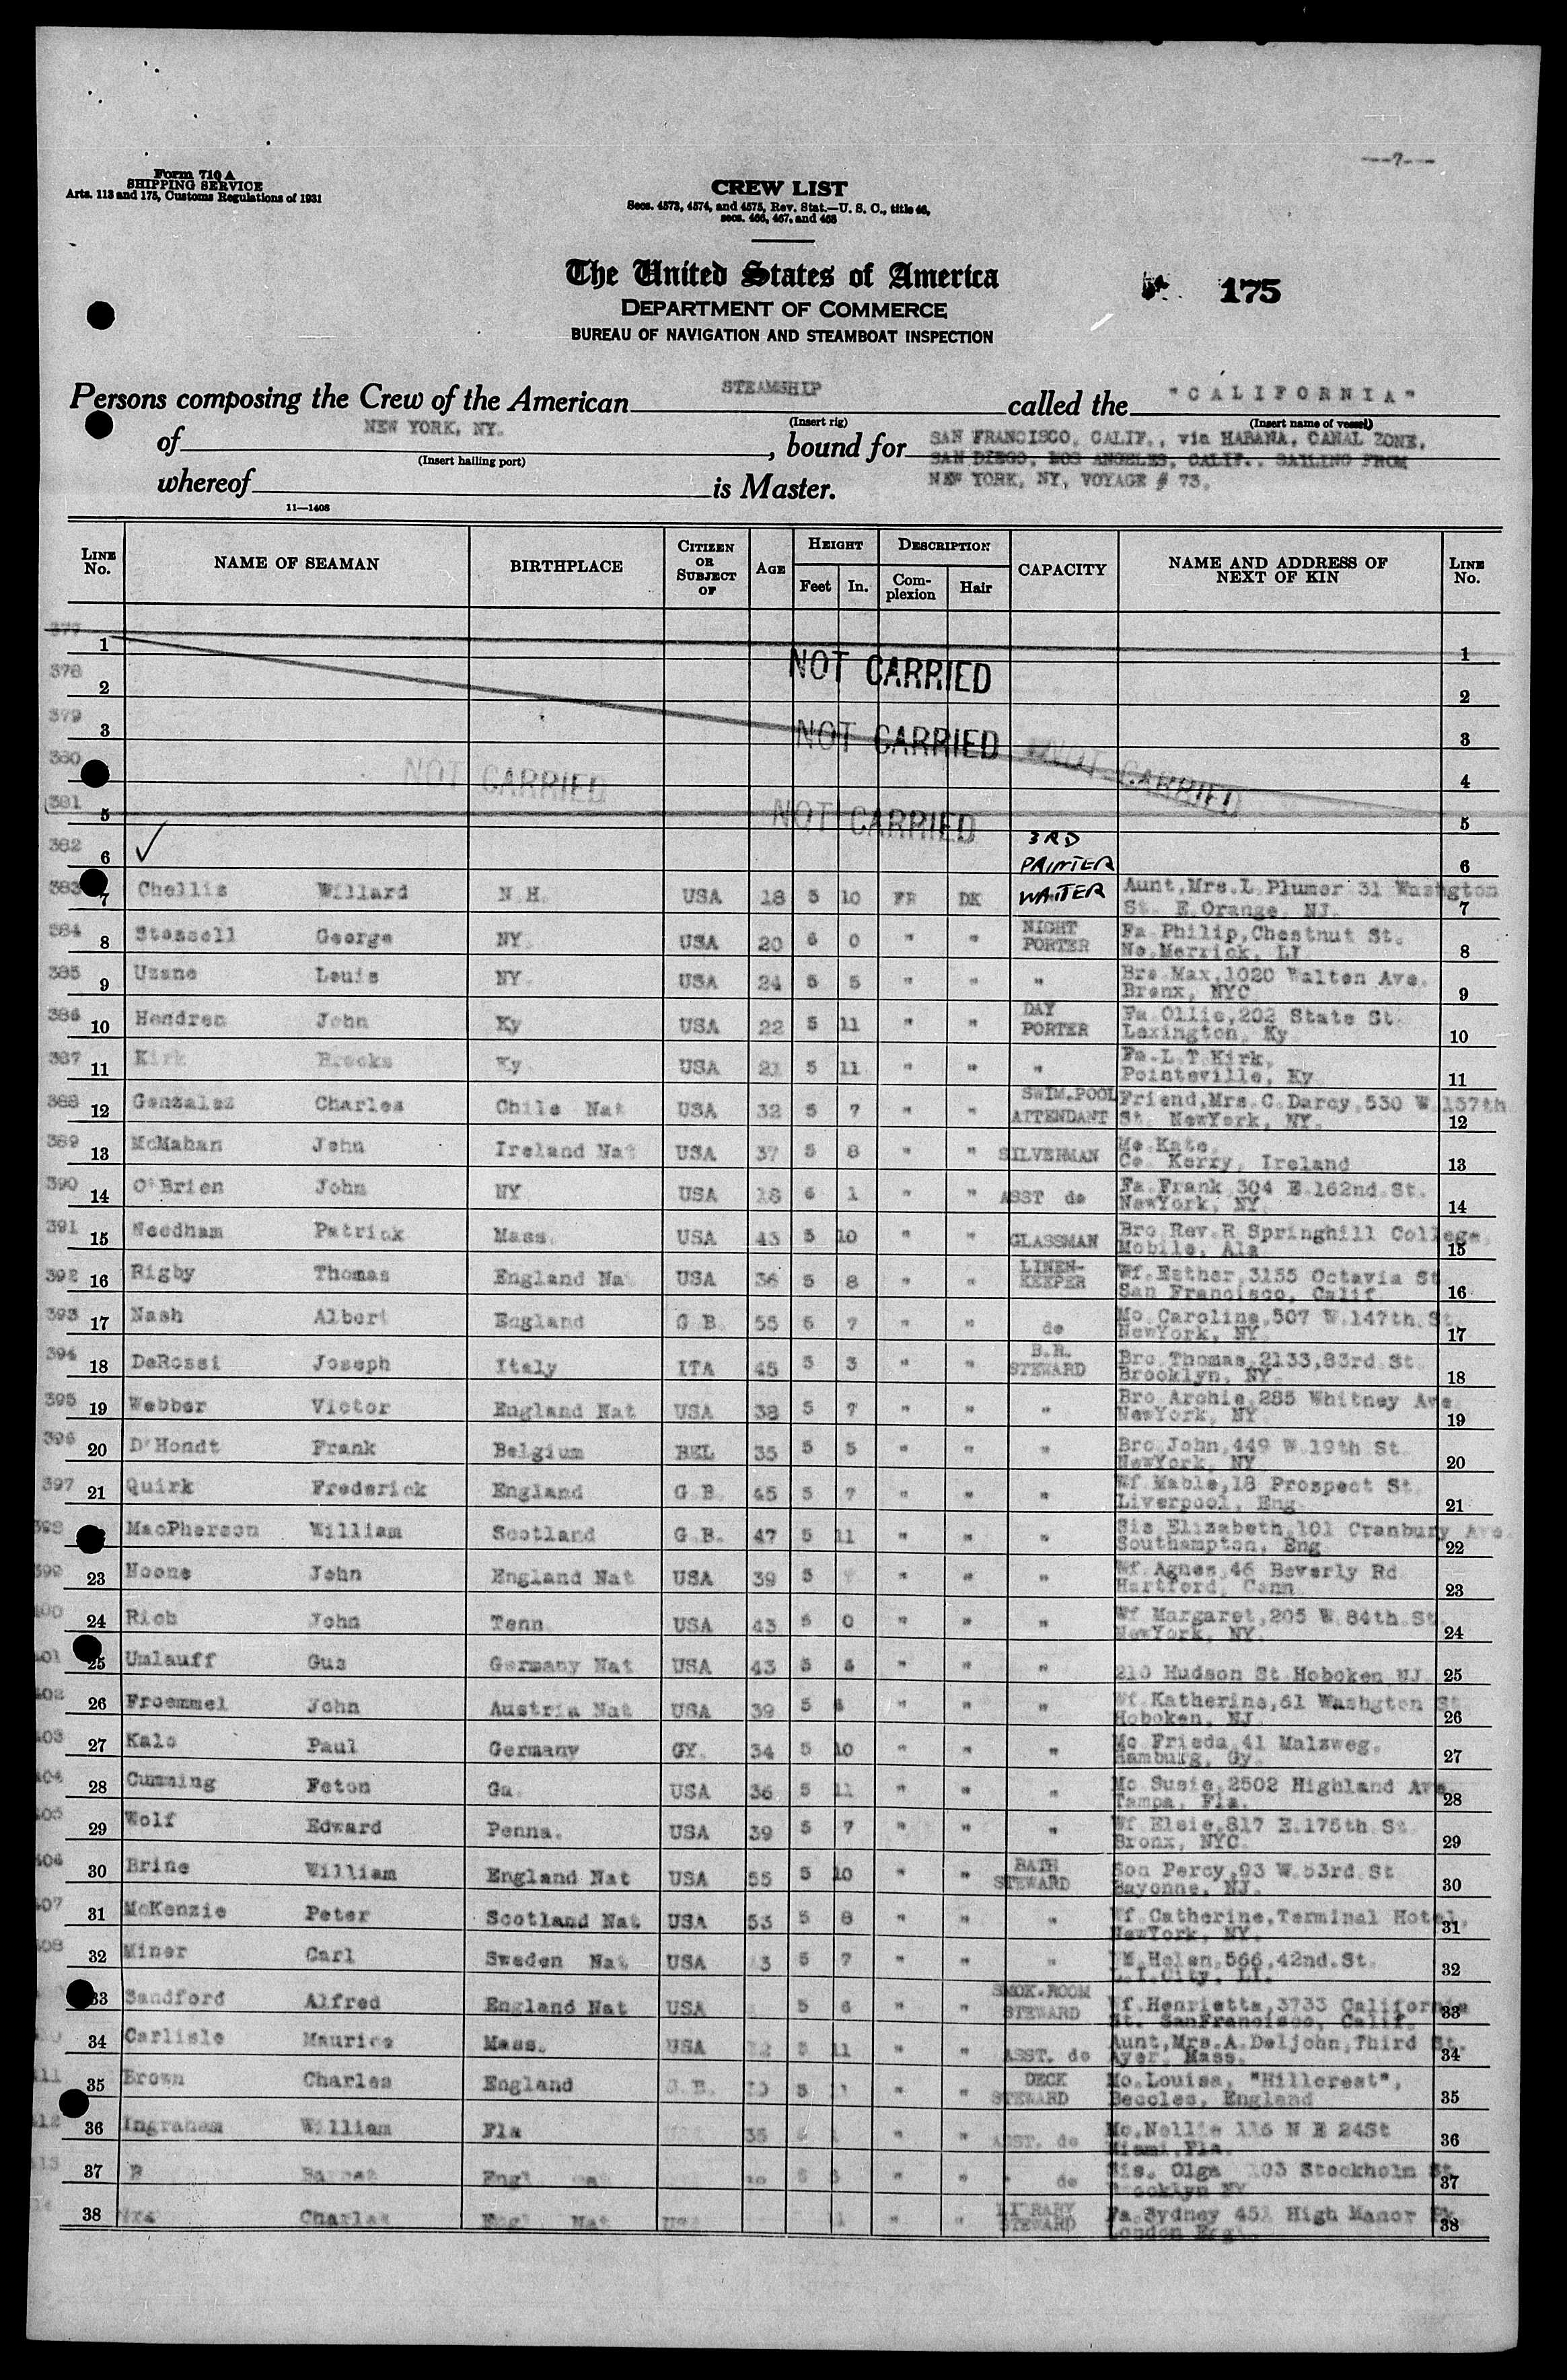 ---7---
Form 710 A
SHIPPING SERVICE
Arts. 113 and 175, Customs Regulations of 1931
CREW LIST
Secs. 4573, 4574, and 4575, Rev. Stat.—U. S. C., title 46,
secs. 466, 467, and 468
The United States of America
175
DEPARTMENT OF COMMERCE
BUREAU OF NAVIGATION AND STEAMBOAT INSPECTION
Persons composing the Crew of the American STEAMSHIP called the "CALIFORNIA"
(Insert rig) (Insert name of vessel)
of NEW YORK, NY. , bound for SAN FRANCISCO, CALIF., via HABANA, CANAL ZONE,
(Insert hailing port) SAN DIEGO, LOS ANGELES, CALIF., SAILING FROM
whereof is Master. NEW YORK, NY, VOYAGE # 73.
11—1408
LINE No. NAME OF SEAMAN BIRTHPLACE CITIZEN OR SUBJECT OF AGE HEIGHT Feet In. DESCRIPTION Complexion Hair CAPACITY NAME AND ADDRESS OF NEXT OF KIN LINE No.
377 1 1
NOT CARRIED
378 2 2
379 3 NOT CARRIED 3
380 NOT CARRIED NOT CARRIED 4
381 5 NOT CARRIED 5
382 6 ✓ 3RD PAINTER 6
383 7 Chellis Willard N.H. USA 18 5 10 FR DK WAITER Aunt,Mrs.L Plumer 31 Washgton St. E.Orange, NJ. 7
384 8 Stossell George NY. USA 20 6 0 " " NIGHT PORTER Fa Philip,Chestnut St. No.Merrick, LI 8
385 9 Uzane Louis NY. USA 24 5 5 " " " Bro Max,1020 Walton Ave. Bronx, NYC 9
386 10 Hendren John Ky USA 22 5 11 " " DAY PORTER Fa Ollie,202 State St. Lexington, Ky 10
387 11 Kirk Brooks Ky. USA 21 5 11 " " " Fa.L T Kirk, Pointsville, Ky 11
388 12 Gonzalez Charles Chile Nat USA 32 5 7 " " SWIM.POOL ATTENDANT Friend,Mrs.C.Darcy,530 W.157th St. NewYork, NY. 12
389 13 McMahan John Ireland Nat USA 37 5 8 " " SILVERMAN Mo Kate, Co. Kerry, Ireland 13
390 14 O'Brien John NY USA 18 6 1 " " ASST do Fa.Frank 304 E.162nd.St. NewYork, NY 14
391 15 Needham Patrick Mass. USA 43 5 10 " " GLASSMAN Bro Rev.R Springhill College, Mobile, Ala 15
392 16 Rigby Thomas England Nat USA 36 5 8 " " LINEN-KEEPER Wf.Esther,3155 Octavia St San Francisco, Calif 16
393 17 Nash Albert England G B. 55 5 7 " " do Mo Caroline,507 W.147th.St. NewYork, NY 17
394 18 DeRossi Joseph Italy ITA 45 5 3 " " B.R. STEWARD Bro Thomas,2133,83rd.St. Brooklyn, NY. 18
395 19 Webber Victor England Nat USA 38 5 7 " " " Bro Archie,285 Whitney Ave NewYork, NY 19
396 20 D'Hondt Frank Belgium BEL 35 5 5 " " " Bro John,449 W 19th St. NewYork, NY 20
397 21 Quirk Frederick England G B. 45 5 7 " " " Wf Mable,18 Prospect St. Liverpool, Eng 21
398 MacPherson William Scotland G.B. 47 5 11 " " " Sis Elizabeth,101 Cranbury Ave Southampton, Eng 22
399 23 Noone John England Nat USA 39 5 " " " Wf.Agnes,46 Beverly Rd Hartford, Conn 23
400 24 Rich John Tenn USA 43 5 0 " " " Wf Margaret,205 W 84th.St. NewYork, NY. 24
401 25 Umlauff Gus Germany Nat USA 43 5 " " " 210 Hudson St Hoboken NJ. 25
402 26 Froemmel John Austria Nat USA 39 5 " " " Wf.Katherine,61 Washgton St Hoboken, NJ. 26
403 27 Kalo Paul Germany GY. 34 5 10 " " " Mo Frieda,41 Malzweg. Hamburg, Gy. 27
404 28 Cumming Feton Ga. USA 36 5 11 " " " Mo Susie,2502 Highland Ave Tampa, Fla. 28
405 29 Wolf Edward Penna. USA 39 5 7 " " " Wf Elsie,817 E.175th St. Bronx, NYC. 29
406 30 Brine William England Nat USA 55 5 10 " " BATH STEWARD Son Percy,93 W.53rd.St Bayonne, NJ. 30
407 31 McKenzie Peter Scotland Nat USA 53 5 8 " " " Wf.Catherine,Terminal Hotel, NewYork, NY. 31
408 32 Miner Carl Sweden Nat USA 5 7 " " " Helen,566,42nd.St. L.I.City, LI. 32
33 Sandford Alfred England Nat USA 5 6 " " SMOK.ROOM STEWARD Wf.Henrietta,3733 California St. SanFrancisco, Calif. 33
34 Carlisle Maurice Mass. USA 5 11 " " ASST. do Aunt,Mrs.A.Deljohn,Third St. Ayer, Mass. 34
35 Brown Charles England G.B. 5 " " DECK STEWARD Mo.Louisa, "Hillcrest", Beccles, England 35
36 Ingraham William Fla 35 " " ASST. do Mo.Nellie 116 N E 24St Miami,Fla. 36
37 Engl 5 " " " do Sis. Olga 103 Stockholm St Brooklyn NY 37
38 Charles Engl Nat USA " " LIBRARY STEWARD Fa.Sydney 451 High Manor Pk. London Engl. 38